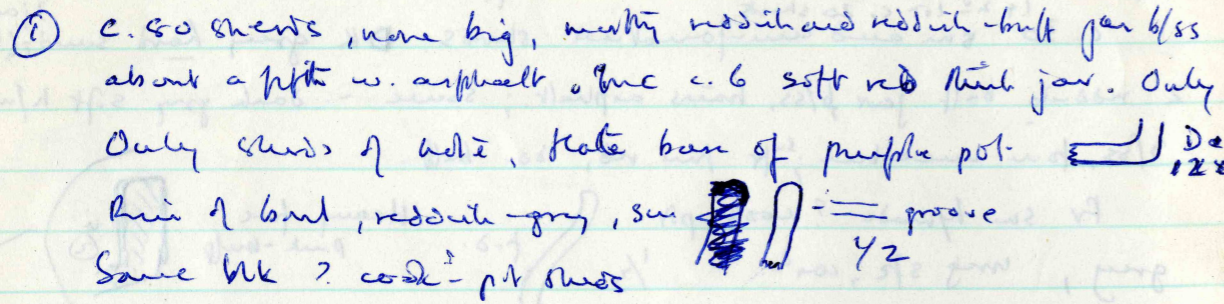 ① c. 80 sherds, none big, mostly reddish and reddish-buff jar b/ss
about a fifth w. asphalt. Inc c. 6 soft red thick jar. Only
Only sherds of note, flat base of purple pot.
Rim of bowl, reddish-grey, groove
1/2
Some blk ? cook-pot sherds